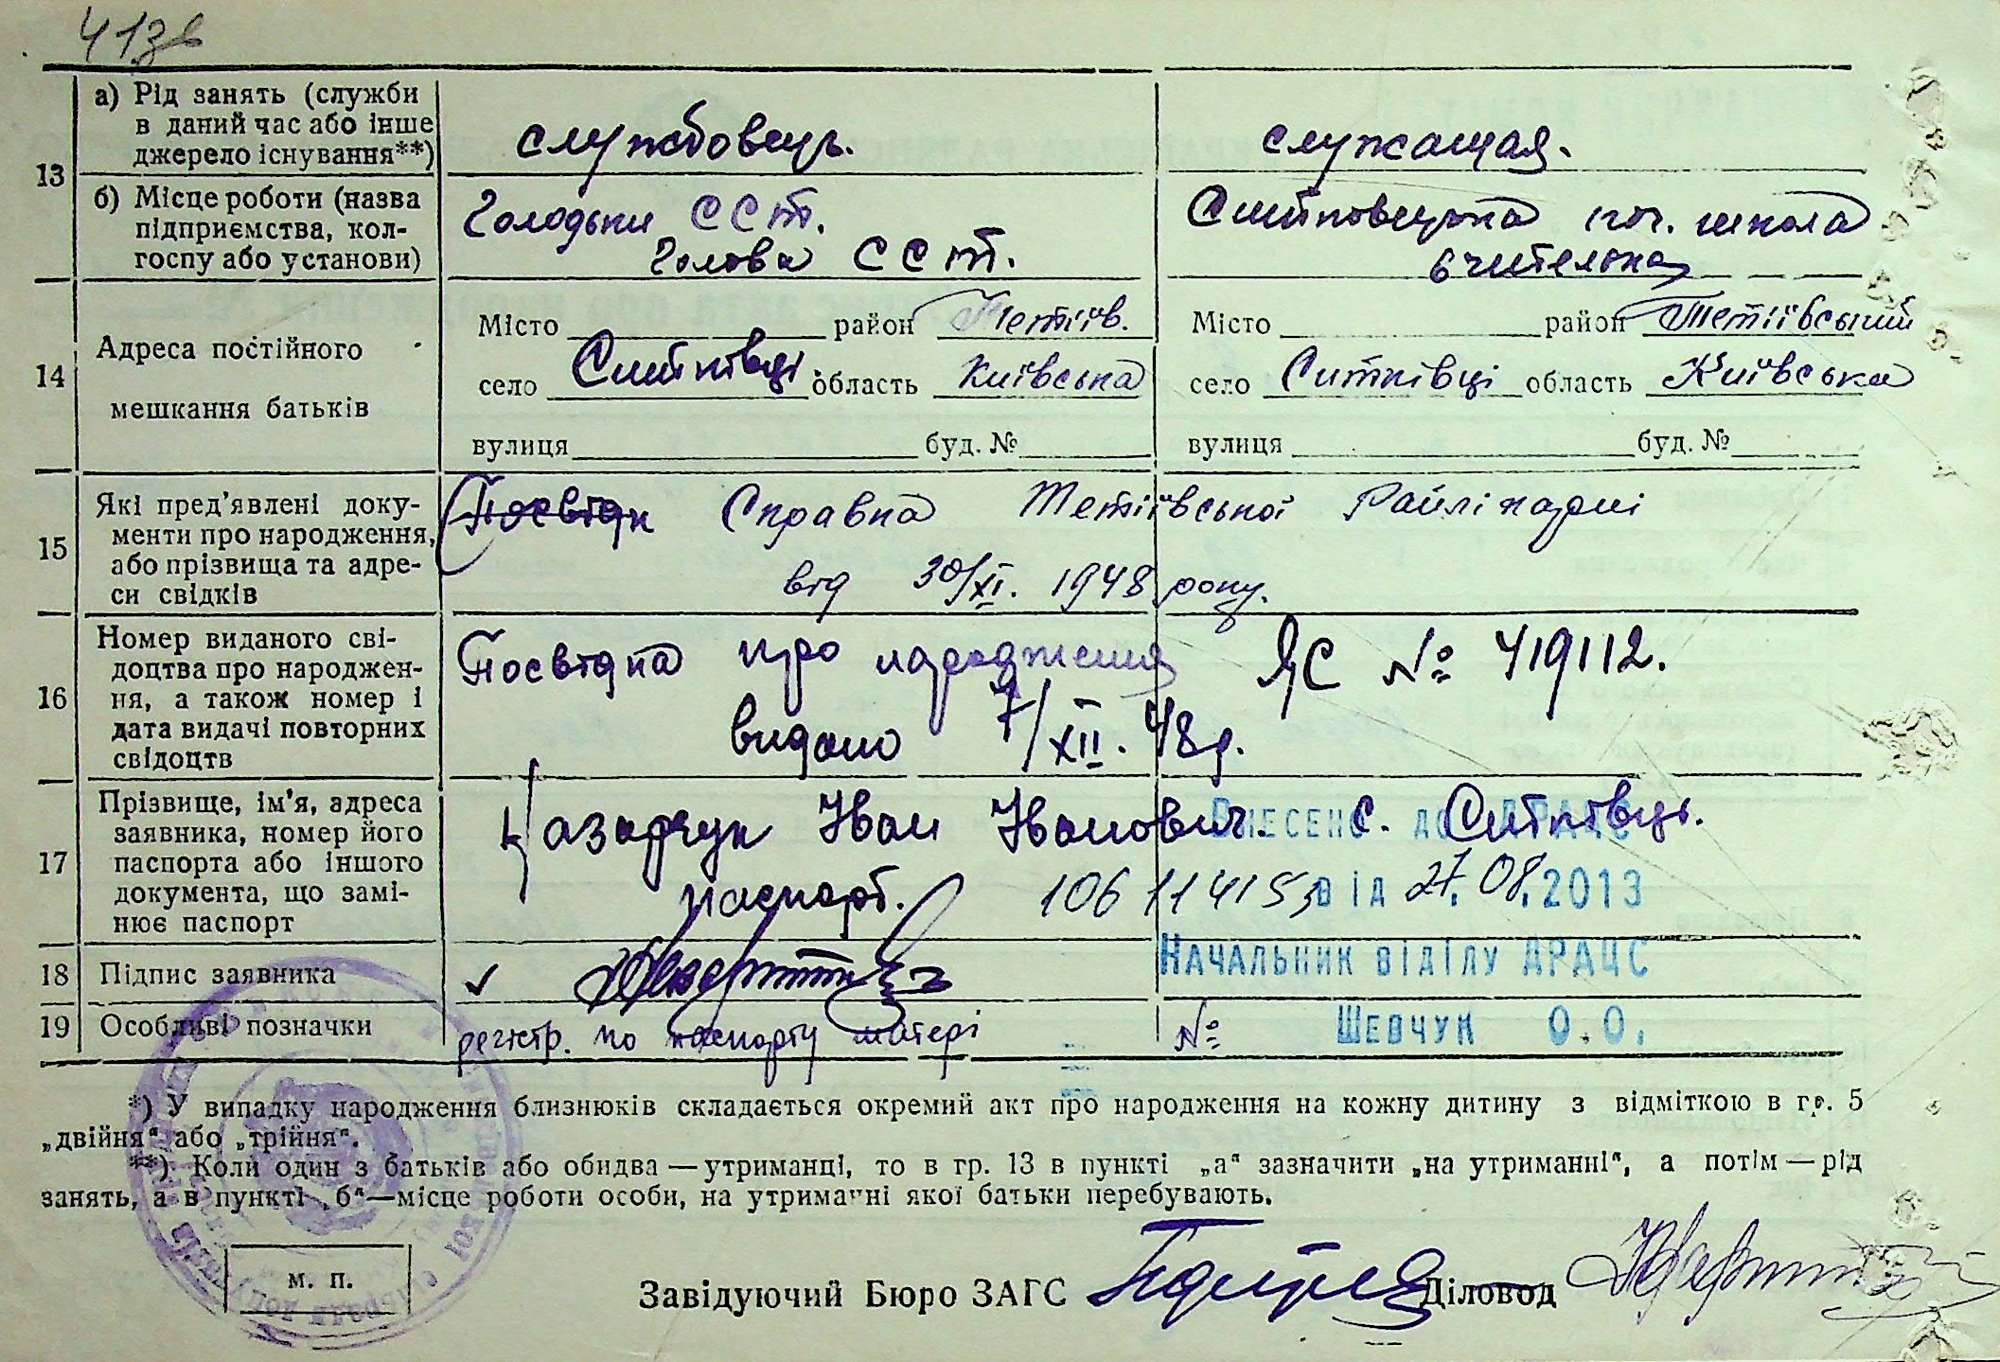 413в
13
а) Рід занять (служби
в даний час або інше
джерело існування**)
службовець.
служащая.
б) Місце роботи (назва
підприємства, кол-
госпу або установи)
Голодьки ССТ.
Голова ССТ.
Ситковецька поч. школа
вчителька
14
Адреса постійного
мешкання батьків
Місто район Тетіїв.
село Ситківці. область Київська
вулиця буд. №
Місто район Тетіївський
село Ситківці область Київська
вулиця буд. №
15
Які пред'явлені доку-
менти про народження,
або прізвища та адре-
си свідків
Посвідк Справка Тетіївської Райлікарні
від 30/XI. 1948 року.
16
Номер виданого сві-
доцтва про народжен-
ня, а також номер і
дата видачі повторних
свідоцтв
Посвідка про народження ЯС № 419112.
видано 7/XII. 48 р.
17
Прізвище, ім'я, адреса
заявника, номер його
паспорта або іншого
документа, що замі-
нює паспорт
Назарчук Іван Іванович. с. Ситківць.
паспорт.
Внесено до ДРАЦС
від 27.08.2013
Начальник відділу ДРАЦС
Шевчук О.О.
18
Підпис заявника
19
Особливі позначки
регістр. по паспорту матері
№
*) У випадку народження близнюків складається окремий акт про народження на кожну дитину з відміткою в гр. 5
„двійня“ або „трійня“.
**) Коли один з батьків або обидва — утриманці, то в гр. 13 в пункті „а“ зазначити „на утриманні“, а потім — рід
занять, а в пункті „б“—місце роботи особи, на утриманні якої батьки перебувають.
м. п.
Завідуючий Бюро ЗАГС
Діловод